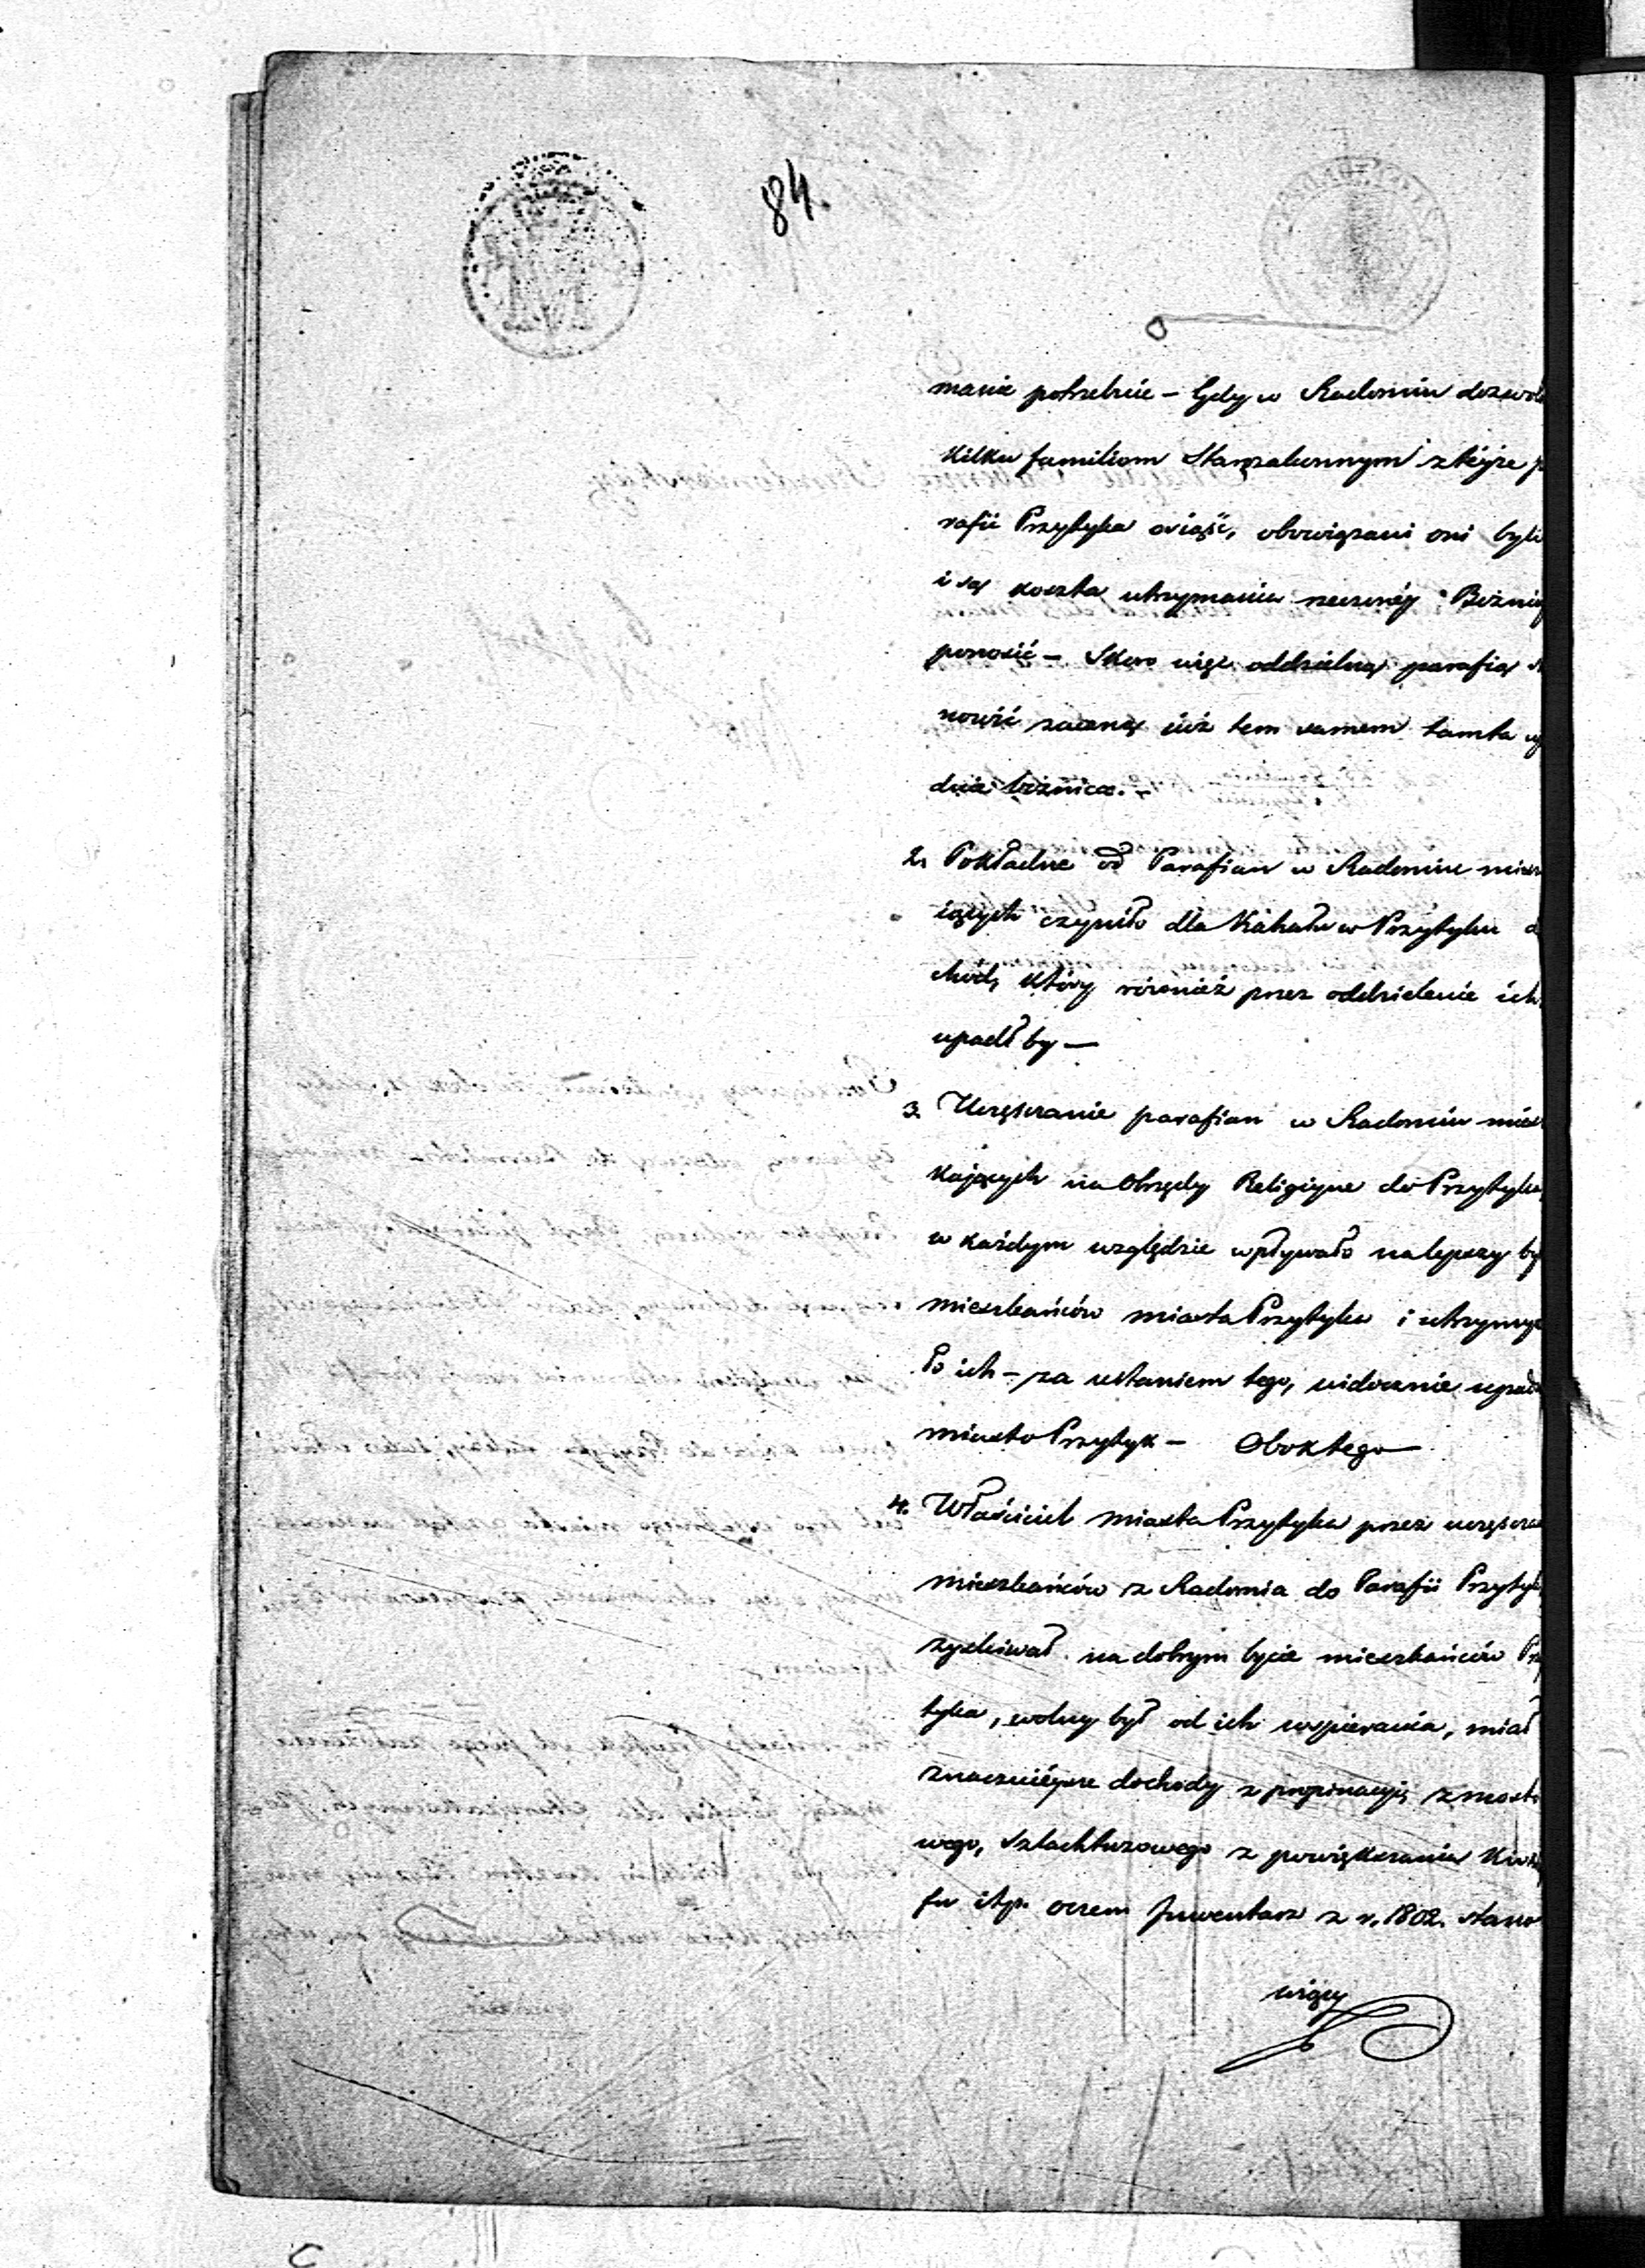 84.
macie potrzebnie – Gdy w Radomiu dozwolo
kilku familiom Starozakonnym z téjże p
rafii Przytyka osiąść, obowiązani oni byli
i są koszta utrzymania rzeczonéj Bożnic
ponosić – Skoro więc oddzielną parafią st
nowić zaczną już tem samem tamta up
dnie bożnica. –
2. Pokładne od Parafian w Radomiu miesz
iących czyniło dla Kahału w Przytyku d
chód, który również przez oddzielenie ich
upadł by —
3. Uczęszczanie parafian w Radomiu miesz
kających na Obrzędy Religijne do Przytyka,
w każdym względzie wpływało na lepszy by
mieszkańców miasta Przytyka i utrzymy
ło ich – za ustaniem tego, widocznie upad
miasto Przytyk – Obok tego —
4. Właściciel miasta Przytyka przez uczęszcza
mieszkańców z Radomia do Parafii Przytyk
zyskiwał na dobrym bycie mieszkańców Prz
tyka, wolny był od ich wspierania, miał
znaczniéjsze dochody z propinacyi, z mosto
wego, szlachtuzowego z powiększania
fu itp. oczem Inwentarz z r. 1802. stano
wiący